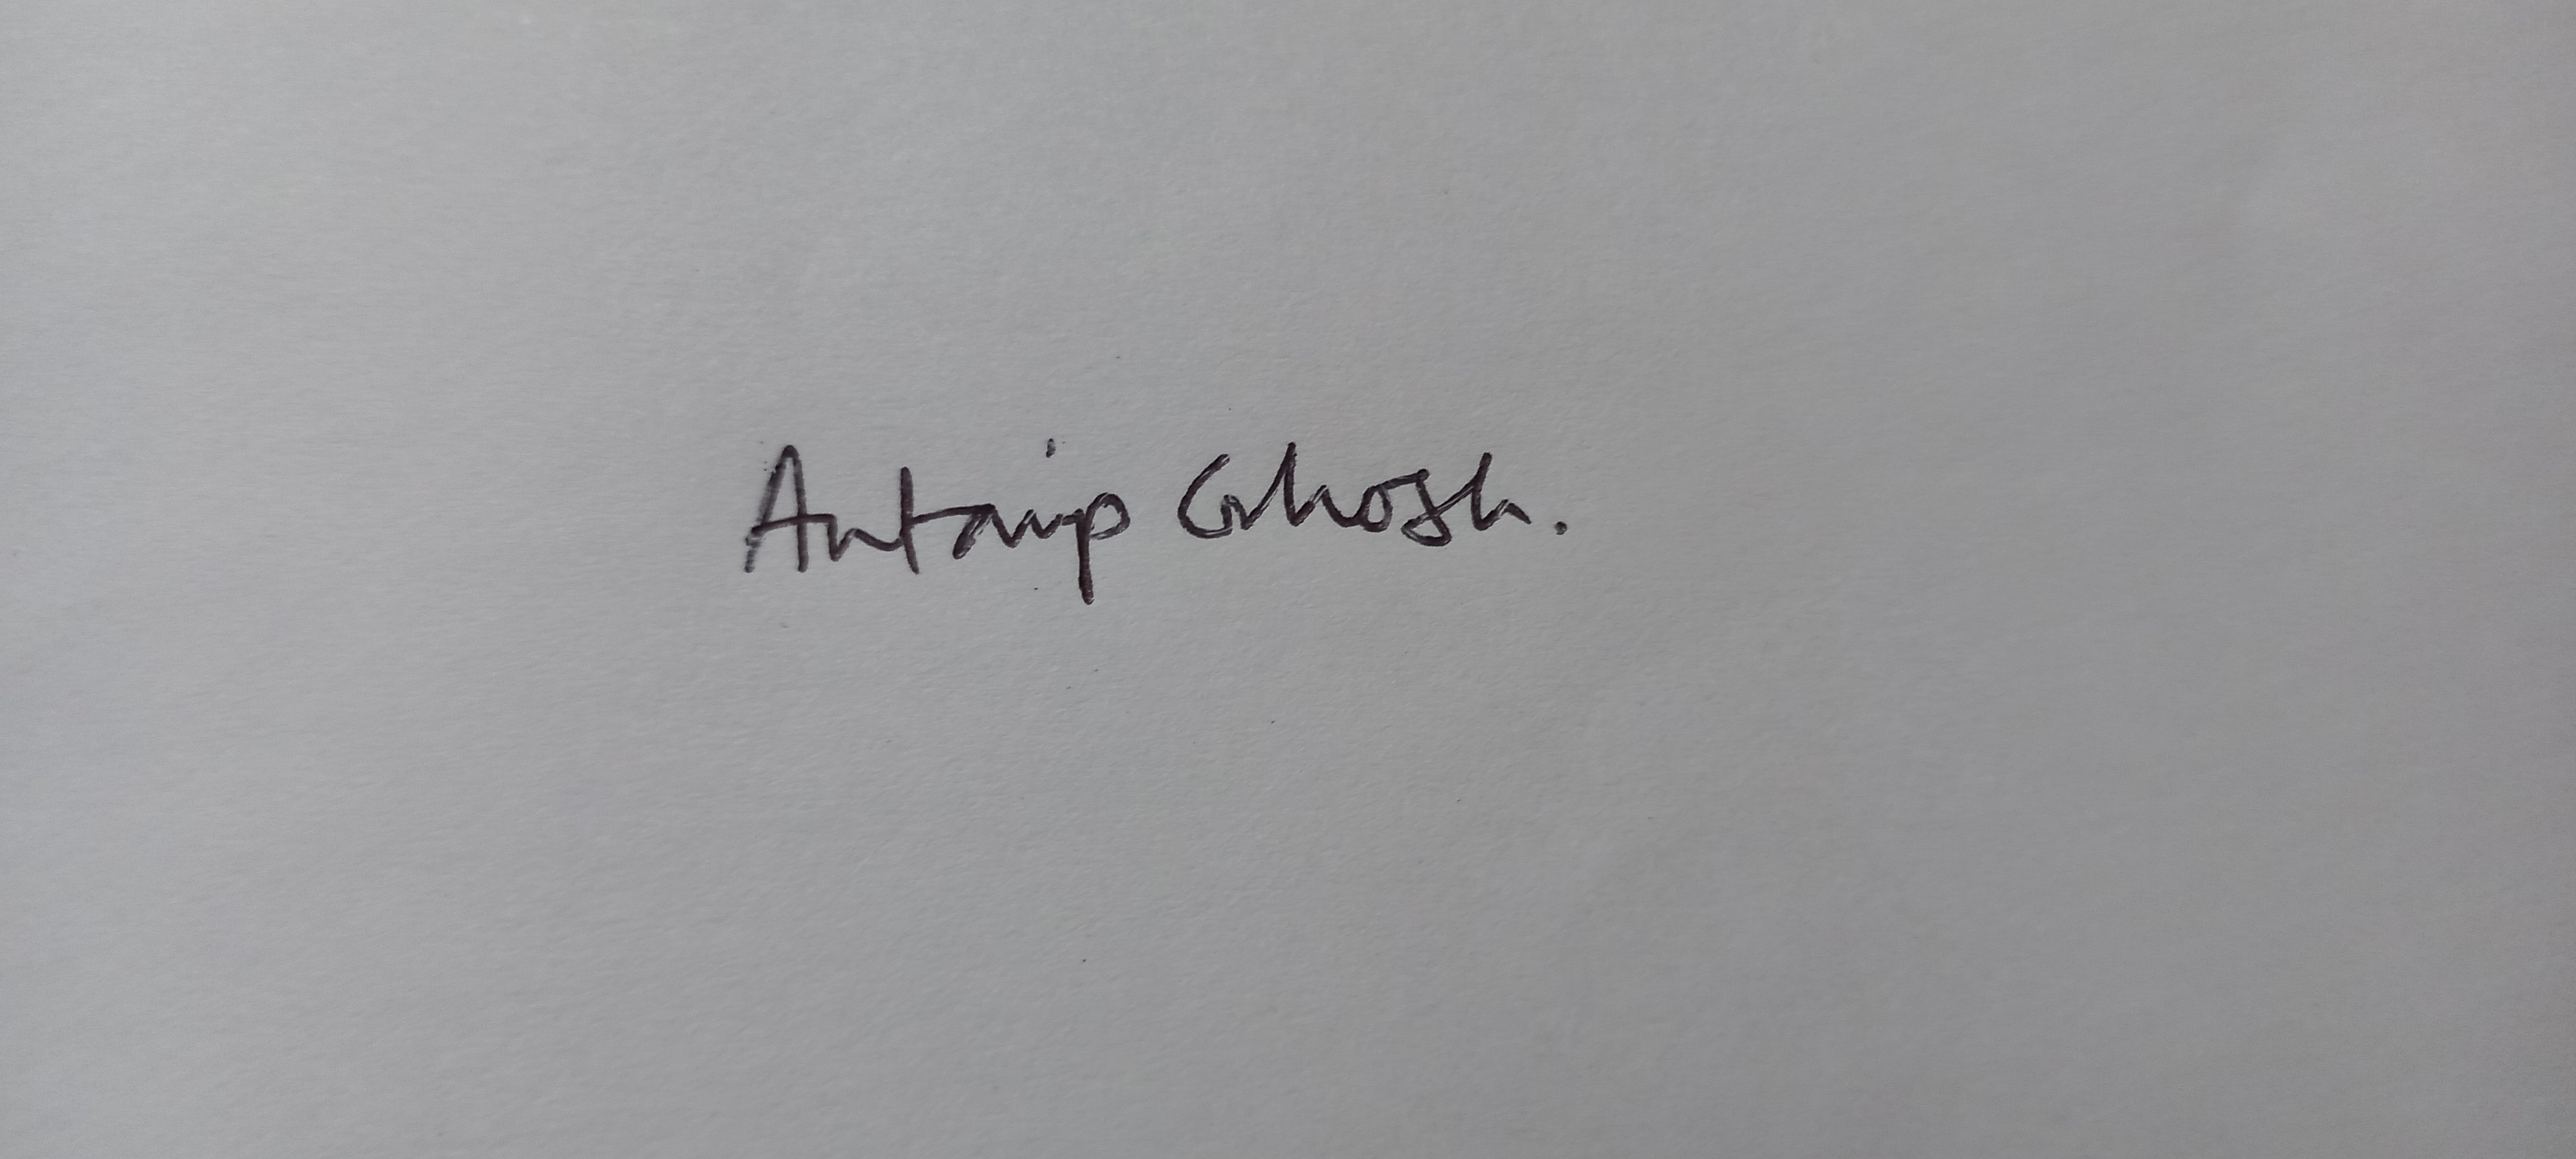 Antarip Ghosh.